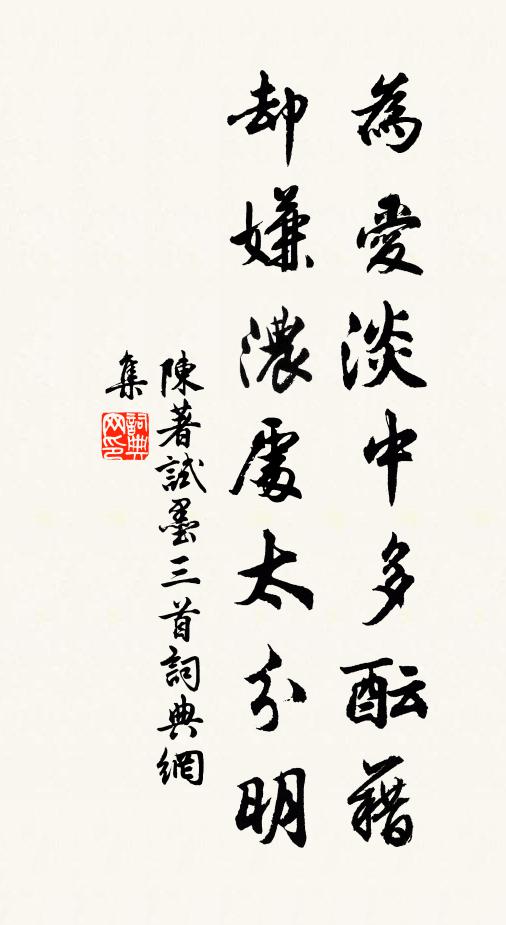 為愛淡中多酝藉
却嫌濃處太分明
陳著試墨三首詞典網
集
詞典網印